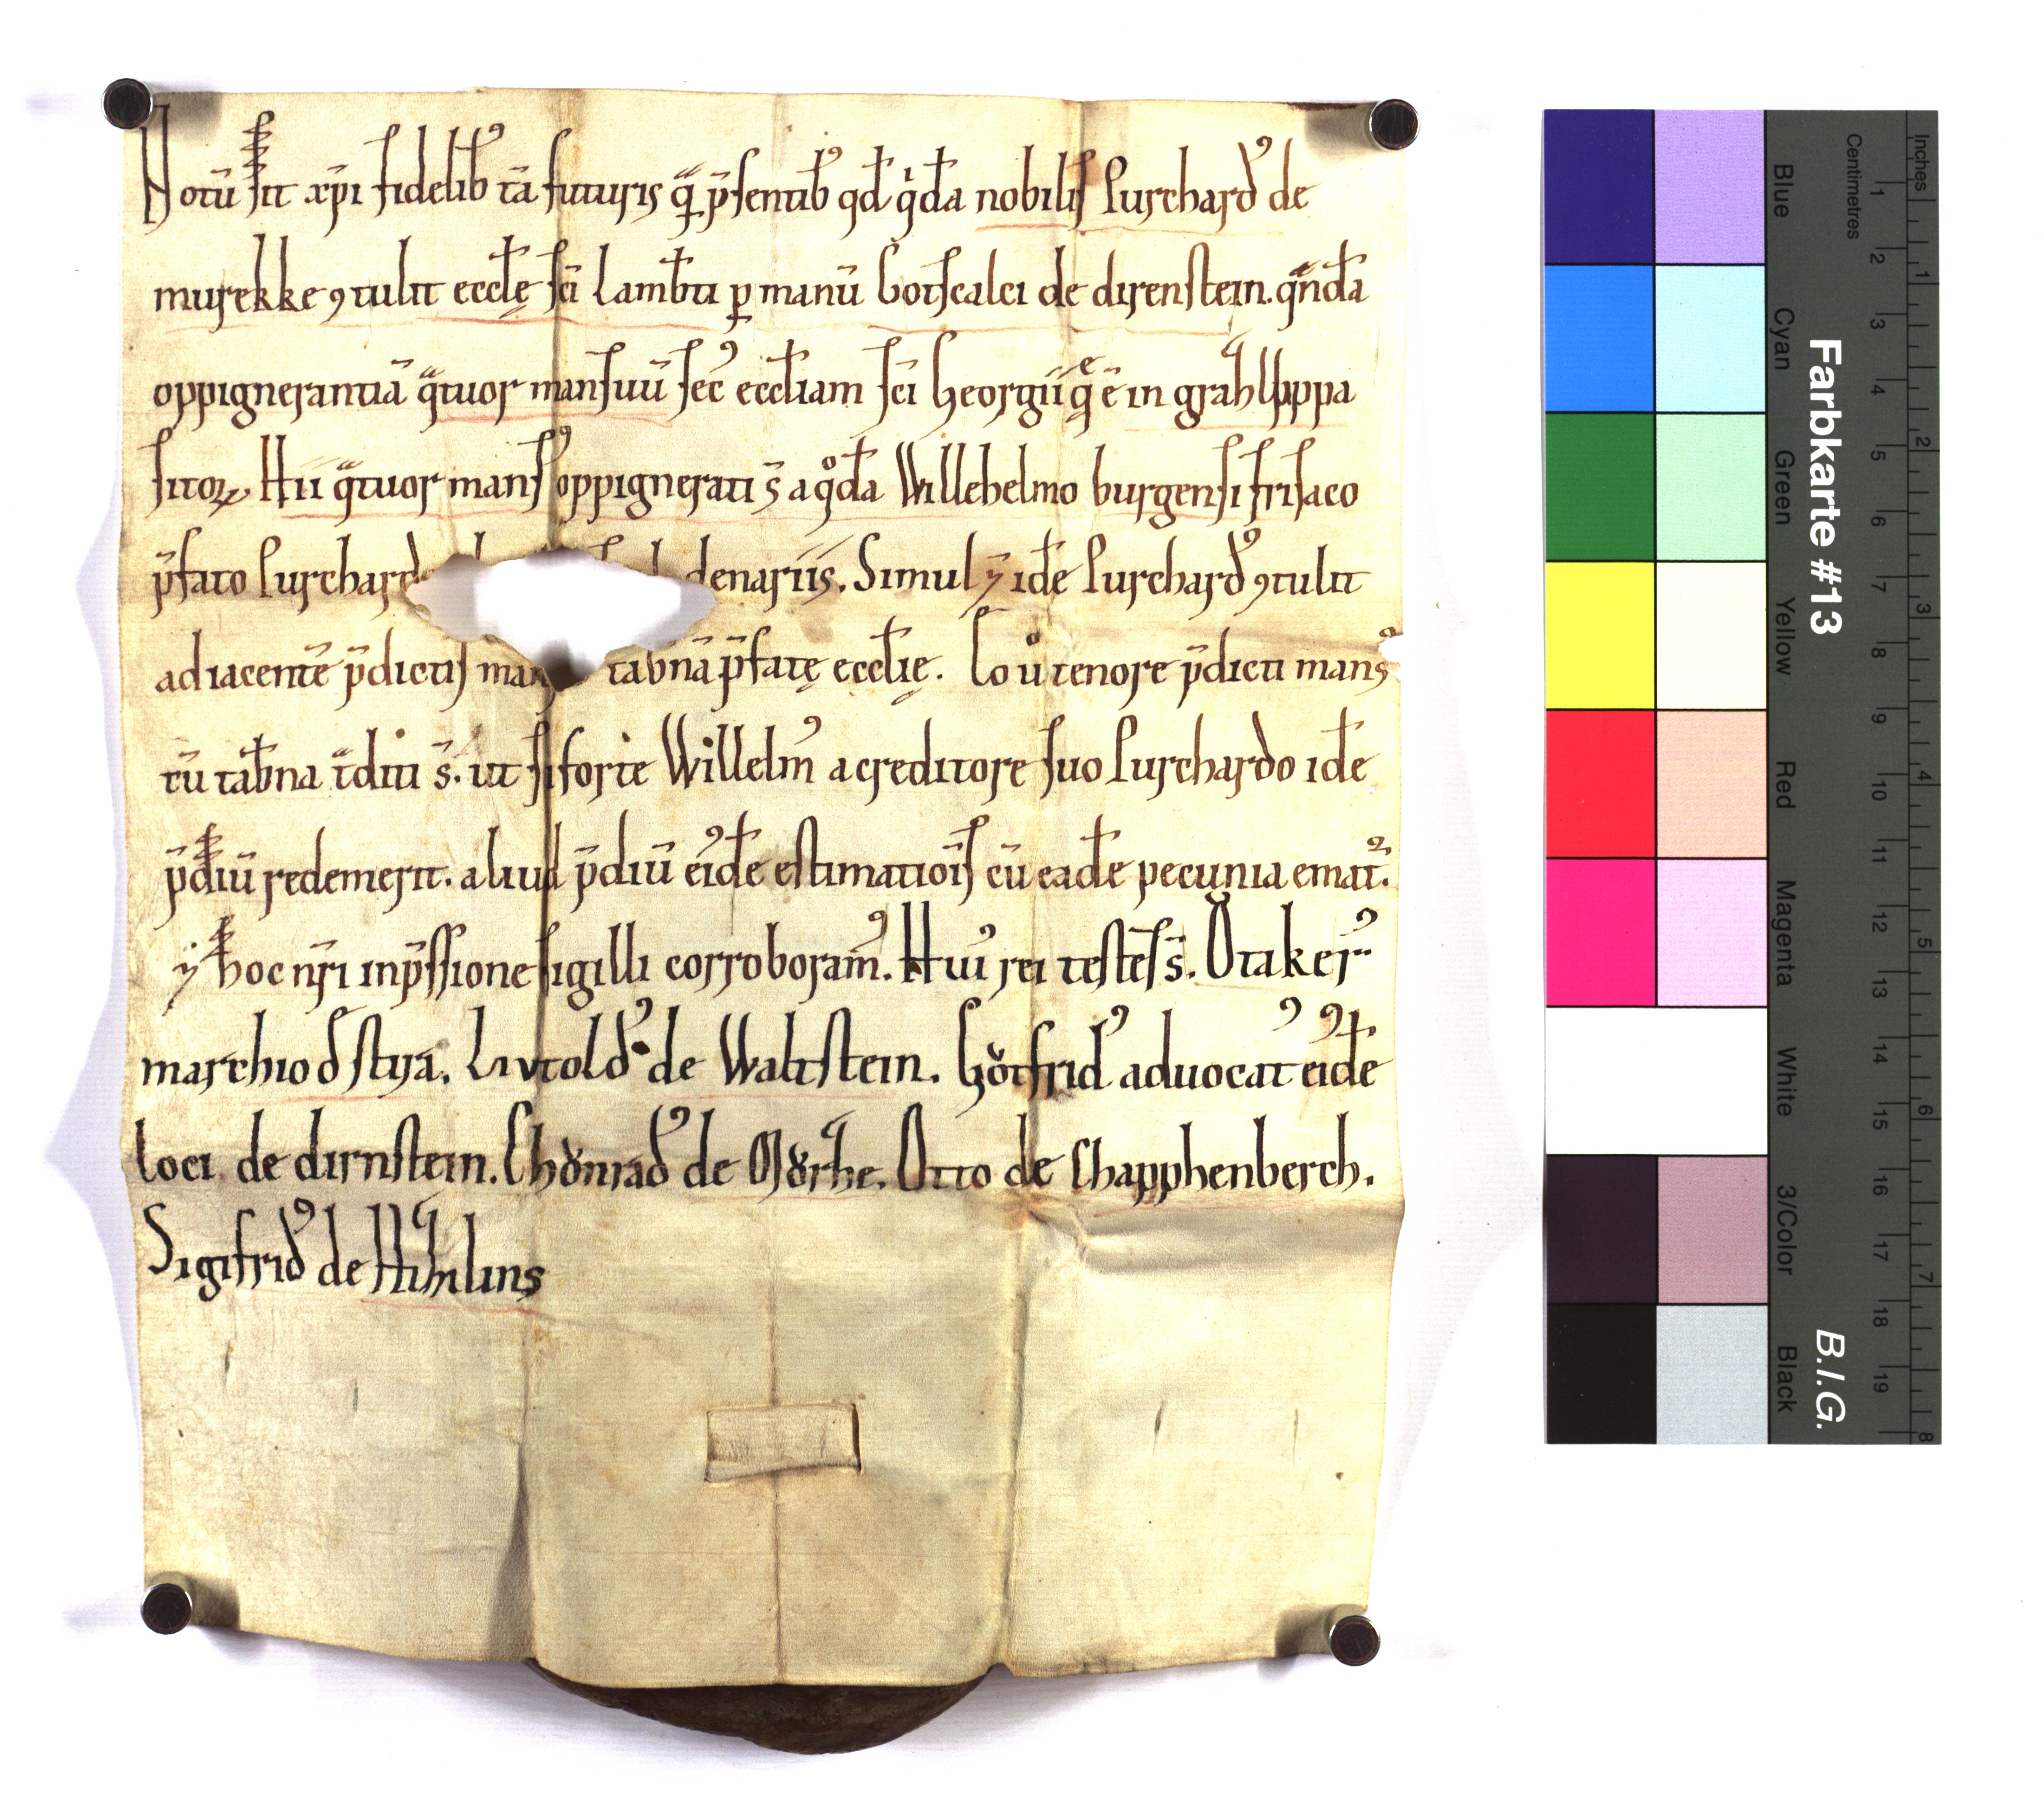 Notū sit xp̄i fidelib; tā futuris q̄ p̄sentib; qd q̇dā nobilis Purchardꝰ de
murekke ꝯtulit eccłę sc̄i Lamb̄ti ꝑ manū Gotscalci de direnstein. qͣndā
oppignerantiā qͣtuor mansuū sec̄ꝰ eccłiam sc̄i Georgii q̄ ē in grahsluppa
sitoꝝ. Hii qͣtuor mansꝰ oppignerati s̄ a qͦdā Willehelmo burgensi frisaco
p̄fato Purchard denariis. Simul ⁊ idē Purchardꝰ ꝯtulit
adiacentē p̄dictis tab̄nā p̄fatę eccłię. Eo ů tenore p̄dicti mansꝰ
cū tab̄na t̄diti s̄. ut si forte Willelmꝰ a creditore suo Purchardo idē
p̄diū redemerit. aliud p̄diū eiꝰdē estimatiōis cū eadē pecunia emat᷑.
⁊ hoc nr̄i inp̄ssione sigilli corroboramꝰ. Huiꝰ rei testes s̄. Otakerꝰ
marchio d̄ stira. Livtoldꝰ de Waltstein. Gotfridꝰ aduocatꝰ eiꝰdē
loci de dirnstein. Chůnradꝰ de Otto de Chapphenberch.
Sigifridꝰ de
Farbkarte #13
B.I.G.
Blue
Cyan
Green
Yellow
Red
Magenta
White
3/Color
Black
Centimetres
1 2 3 4 5 6 7 8 9 10 11 12 13 14 15 16 17 18 19
Inches
1 2 3 4 5 6 7 8